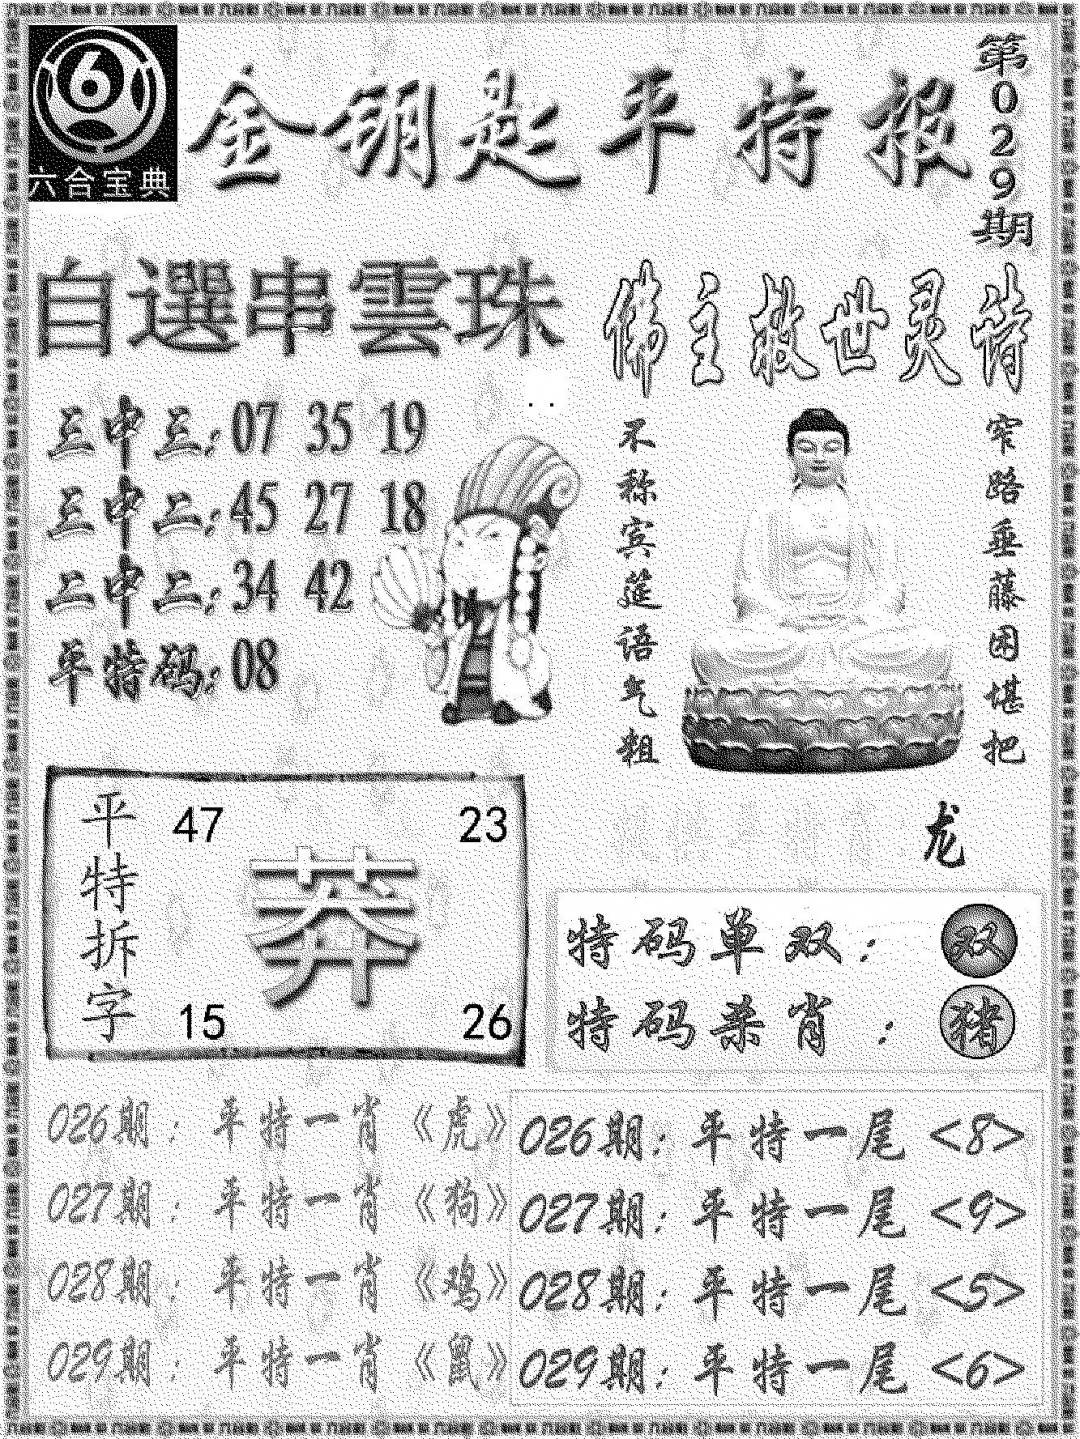 六合宝典
金钥匙平特报
第029期
自選串雲珠
三中三:07 35 19
三中二:45 27 18
二中二:34 42
平特码:08
佛主救世灵诗
窄路垂藤困堪把
不称宾筵语气粗
龙
平特拆字
47 23
莽
15 26
特码单双：双
特码杀肖：猪
026期：平特一肖《虎》
027期：平特一肖《狗》
028期：平特一肖《鸡》
029期：平特一肖《鼠》
026期：平特一尾<8>
027期：平特一尾<9>
028期：平特一尾<5>
029期：平特一尾<6>